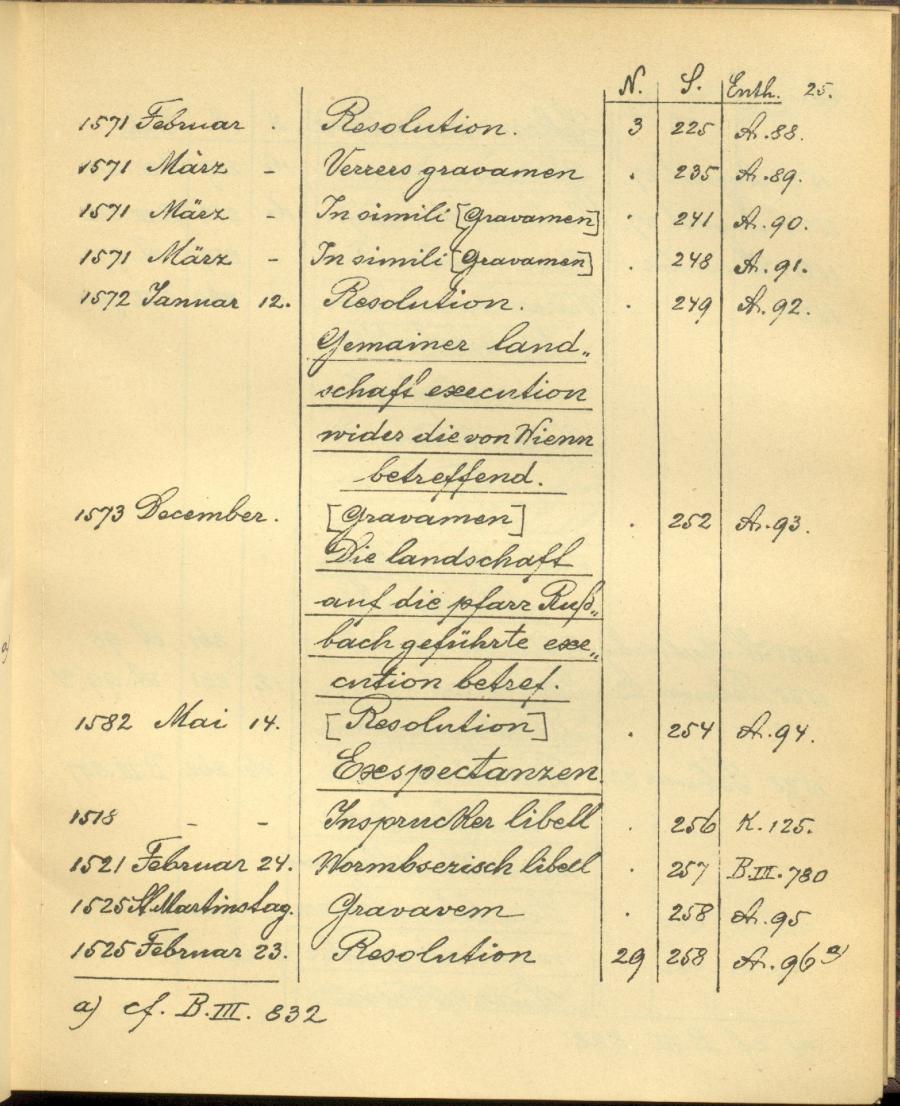 N. S. Enth. 25.
1571 Februar . Resolution. 3 225 A. 88.
1571 März - Verrers gravamen . 235 A. 89.
1571 März - In simili [Gravamen] . 241 A. 90.
1571 März - In simili [Gravamen] . 248 A. 91.
1572 Januar 12. Resolution. . 249 A. 92.
Gemainer land„
schaft execution
wider die von Wienn
betreffend.
1573 December. [Gravamen] . 252 A. 93.
Die landschaft
auf die pfarr Ruß„
bach geführte exe„
cution betref.
1582 Mai 14. [Resolution] . 254 A. 94.
Exspectanzen.
1518 - - Insprucker libell . 256 K. 125.
1521 Februar 24. Wormbserisch libell . 257 B. III. 780
1525 St. Martinstag. Gravavem . 258 A. 95
1525 Februar 23. Resolution 29 258 A. 96 a)
a) cf. B. III. 832